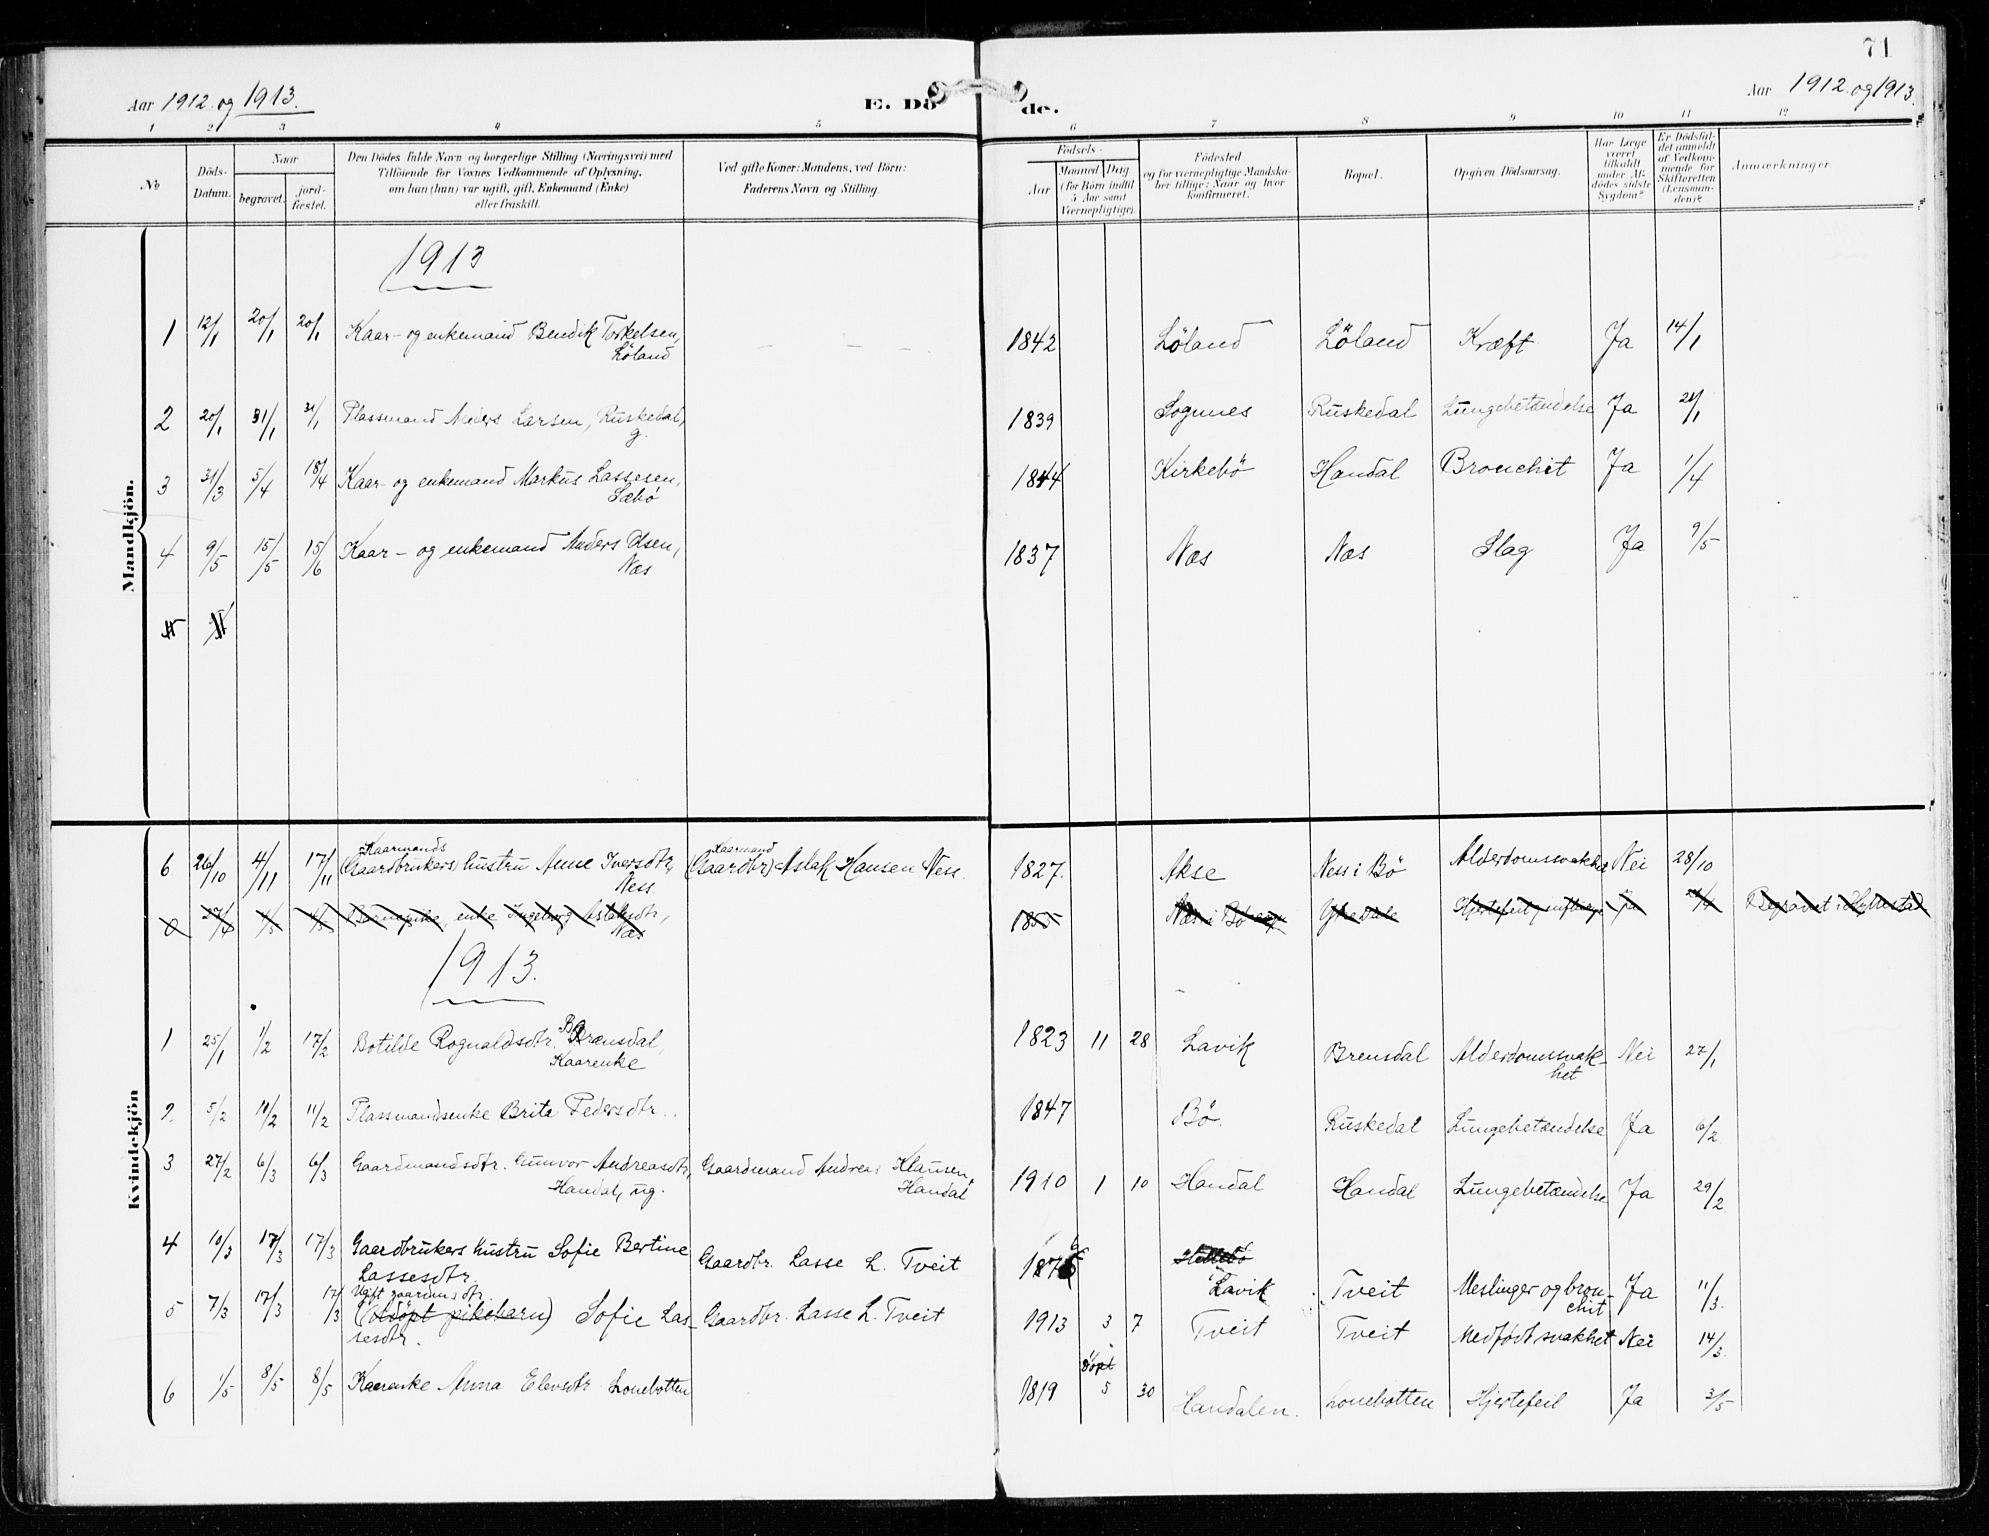 71
Aar 1912 og 1913.
E. Dö de.
Aar 1912 og 1913.
1 2 3 4 5 6 7 8 9 10 11 12
No
Döds-Datum.
Naar
begravet.
jord-fæstet.
Den Dödes fulde Navn og borgerlige Stilling (Næringsvei) med
Tilföiende for Voxnes Vedkommende af Oplysning,
om han (hun) var ugift, gift, Enkemand (Enke)
eller fraskilt.
Ved gifte Koner: Mandens, ved Börn:
Faderens Navn og Stilling.
Födsels-
Aar
Maaned Dag
(for Börn indtil
5 Aar samt
Værnepligtige).
Födested
og for værnepligtige Mandska-
ber tillige: Naar og hvor
konfirmeret.
Bopæl.
Opgiven Dödsaarsag.
Har Læge
været
tilkaldt
under Af-
dödes sidste
Sygdom?
Er Dödsfal-
det anmeldt
af Vedkom-
mende for
Skifteretten
(Lensman-
den)?
Anmærkninger
Mandkjön.
1913
1 12/1 20/1 20/1 Kaar- og enkemand Bendik Torkelsen, 1842 Löland Löland Kræft Ja 14/1
Löland
2 20/1 31/1 31/1 Plassmand Anders Larsen, Ruskedal, 1839 Sognnes Ruskedal Lungebetændelse Ja 21/1
g.
3 31/3 5/4 18/4 Kaar- og enkemand Markus Lassesen, 1844 Kirkebö Handal Bronchit Ja 1/4
Sæbö
4 9/5 15/5 15/6 Kaar- og enkemand Anders Olsen, 1837 Næs Næs Slag Ja 9/5
Næs
Kvindekjön
Kaarmands Kaarmand
6 26/10 4/11 17/11 (Gaardbrukers) hustru Anne Iversdtr, (Gaardbr) Aslak Hansen Ness. 1827. Akse Ness i Bö Alderdomssvakhet Nei 28/10
Ness
27/4 enke Ingeborg Aslaksdtr, 1855 Begravet i Hyllestad
Næs
1913.
1 25/1 1/2 17/2 Botilde Rognaldsdtr. Brænsdal, 1823 11 28 Lavik Brensdal Alderdomssvak-het Nei 27/1
Kaarenke
2 5/2 10/2 11/2 Plassmandsenke Brita Pedersdtr. 1847 Bö. Ruskedal Lungebetændelse Ja 6/2
3 27/2 6/3 6/3 Gaardmandsdtr. Gunvor Andreasdtr, Gaardmand Andreas Klausen, 1910 1 10 Handal Handal Lungebetændelse Ja 29/2
Handal, ug. Handal
4 10/3 17/3 17/3 Gaardbrukers hustru Sofie Bertine Gaardbr. Lasse L. Tveit 1876 Lavik Tveit Meslinger og bron-chit Ja 11/3
Lassesdtr.
Ugift gaardmsdtr.
5 7/3 17/3 17/3 (Udöpt pikebarn) Sofie Las- Gaardbr. Lasse L. Tveit 1913 3 7 Tveit Tveit Medfödt svakhet Nei 14/3
sesdtr.
döpt
6 1/5 8/5 8/5 Kaarenke Anna Elevsdtr Lonebotten 1819 5 30 Handalen. Lonebotten Hjertefeil Ja 3/5